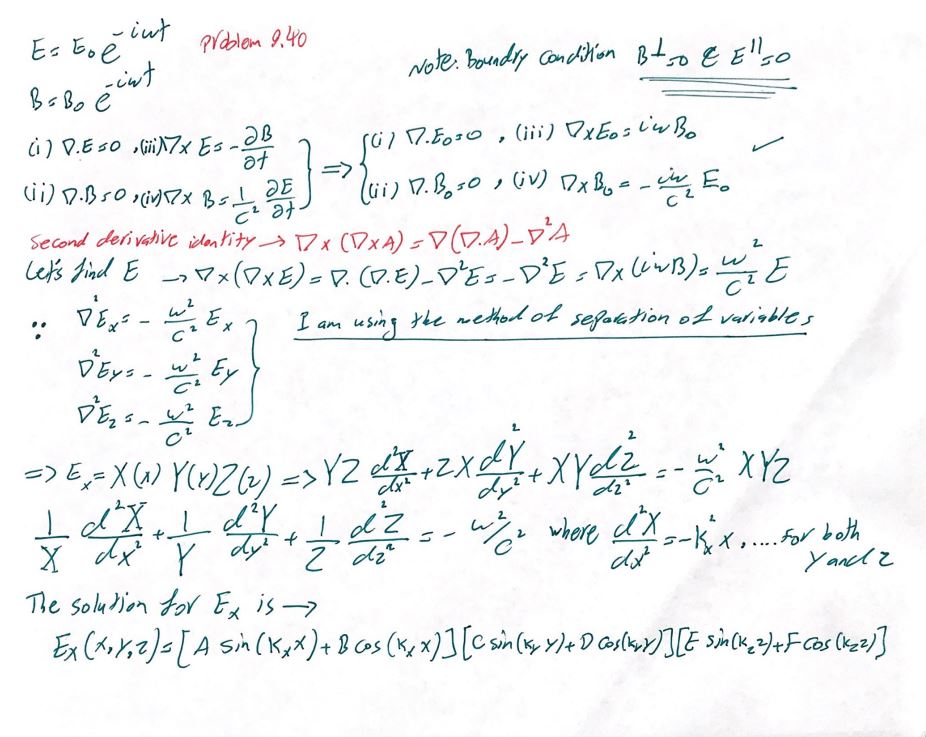 E = E₀e^{-iωt} Problem 9.40
Note: Boundry condition B^⊥=0 & E^{||}=0
B = B₀ e^{-iωt}
(i) ∇.E=0, (iii) ∇× E = -∂B/∂t } => { (i) ∇.E₀=0, (iii) ∇×E₀ = iωB₀ ✓
(ii) ∇.B=0, (iv) ∇× B = 1/c² ∂E/∂t } { (ii) ∇.B₀=0, (iv) ∇×B₀ = - iω/c² E₀
Second derivative identity → ∇×(∇×A) = ∇(∇.A) - ∇²A
Let's find E → ∇×(∇×E) = ∇.(∇.E) - ∇²E = -∇²E = ∇×(iωB) = ω²/c² E
∵ ∇²Ex = - ω²/c² Ex } I am using the method of separation of variables
∇²Ey = - ω²/c² Ey
∇²Ez = - ω²/c² Ez
=> Ex = X(x) Y(y) Z(z) => YZ d²X/dx² + ZX d²Y/dy² + XY d²Z/dz² = - ω²/c² XYZ
1/X d²X/dx² + 1/Y d²Y/dy² + 1/Z d²Z/dz² = - ω²/c² where d²X/dx² = -Kx² x, .... for both
Y and Z
The solution for Ex is →
Ex(x,y,z) = [A sin(Kx x) + B cos(Kx x)][C sin(ky y) + D cos(ky y)][E sin(kz z) + F cos(kz z)]